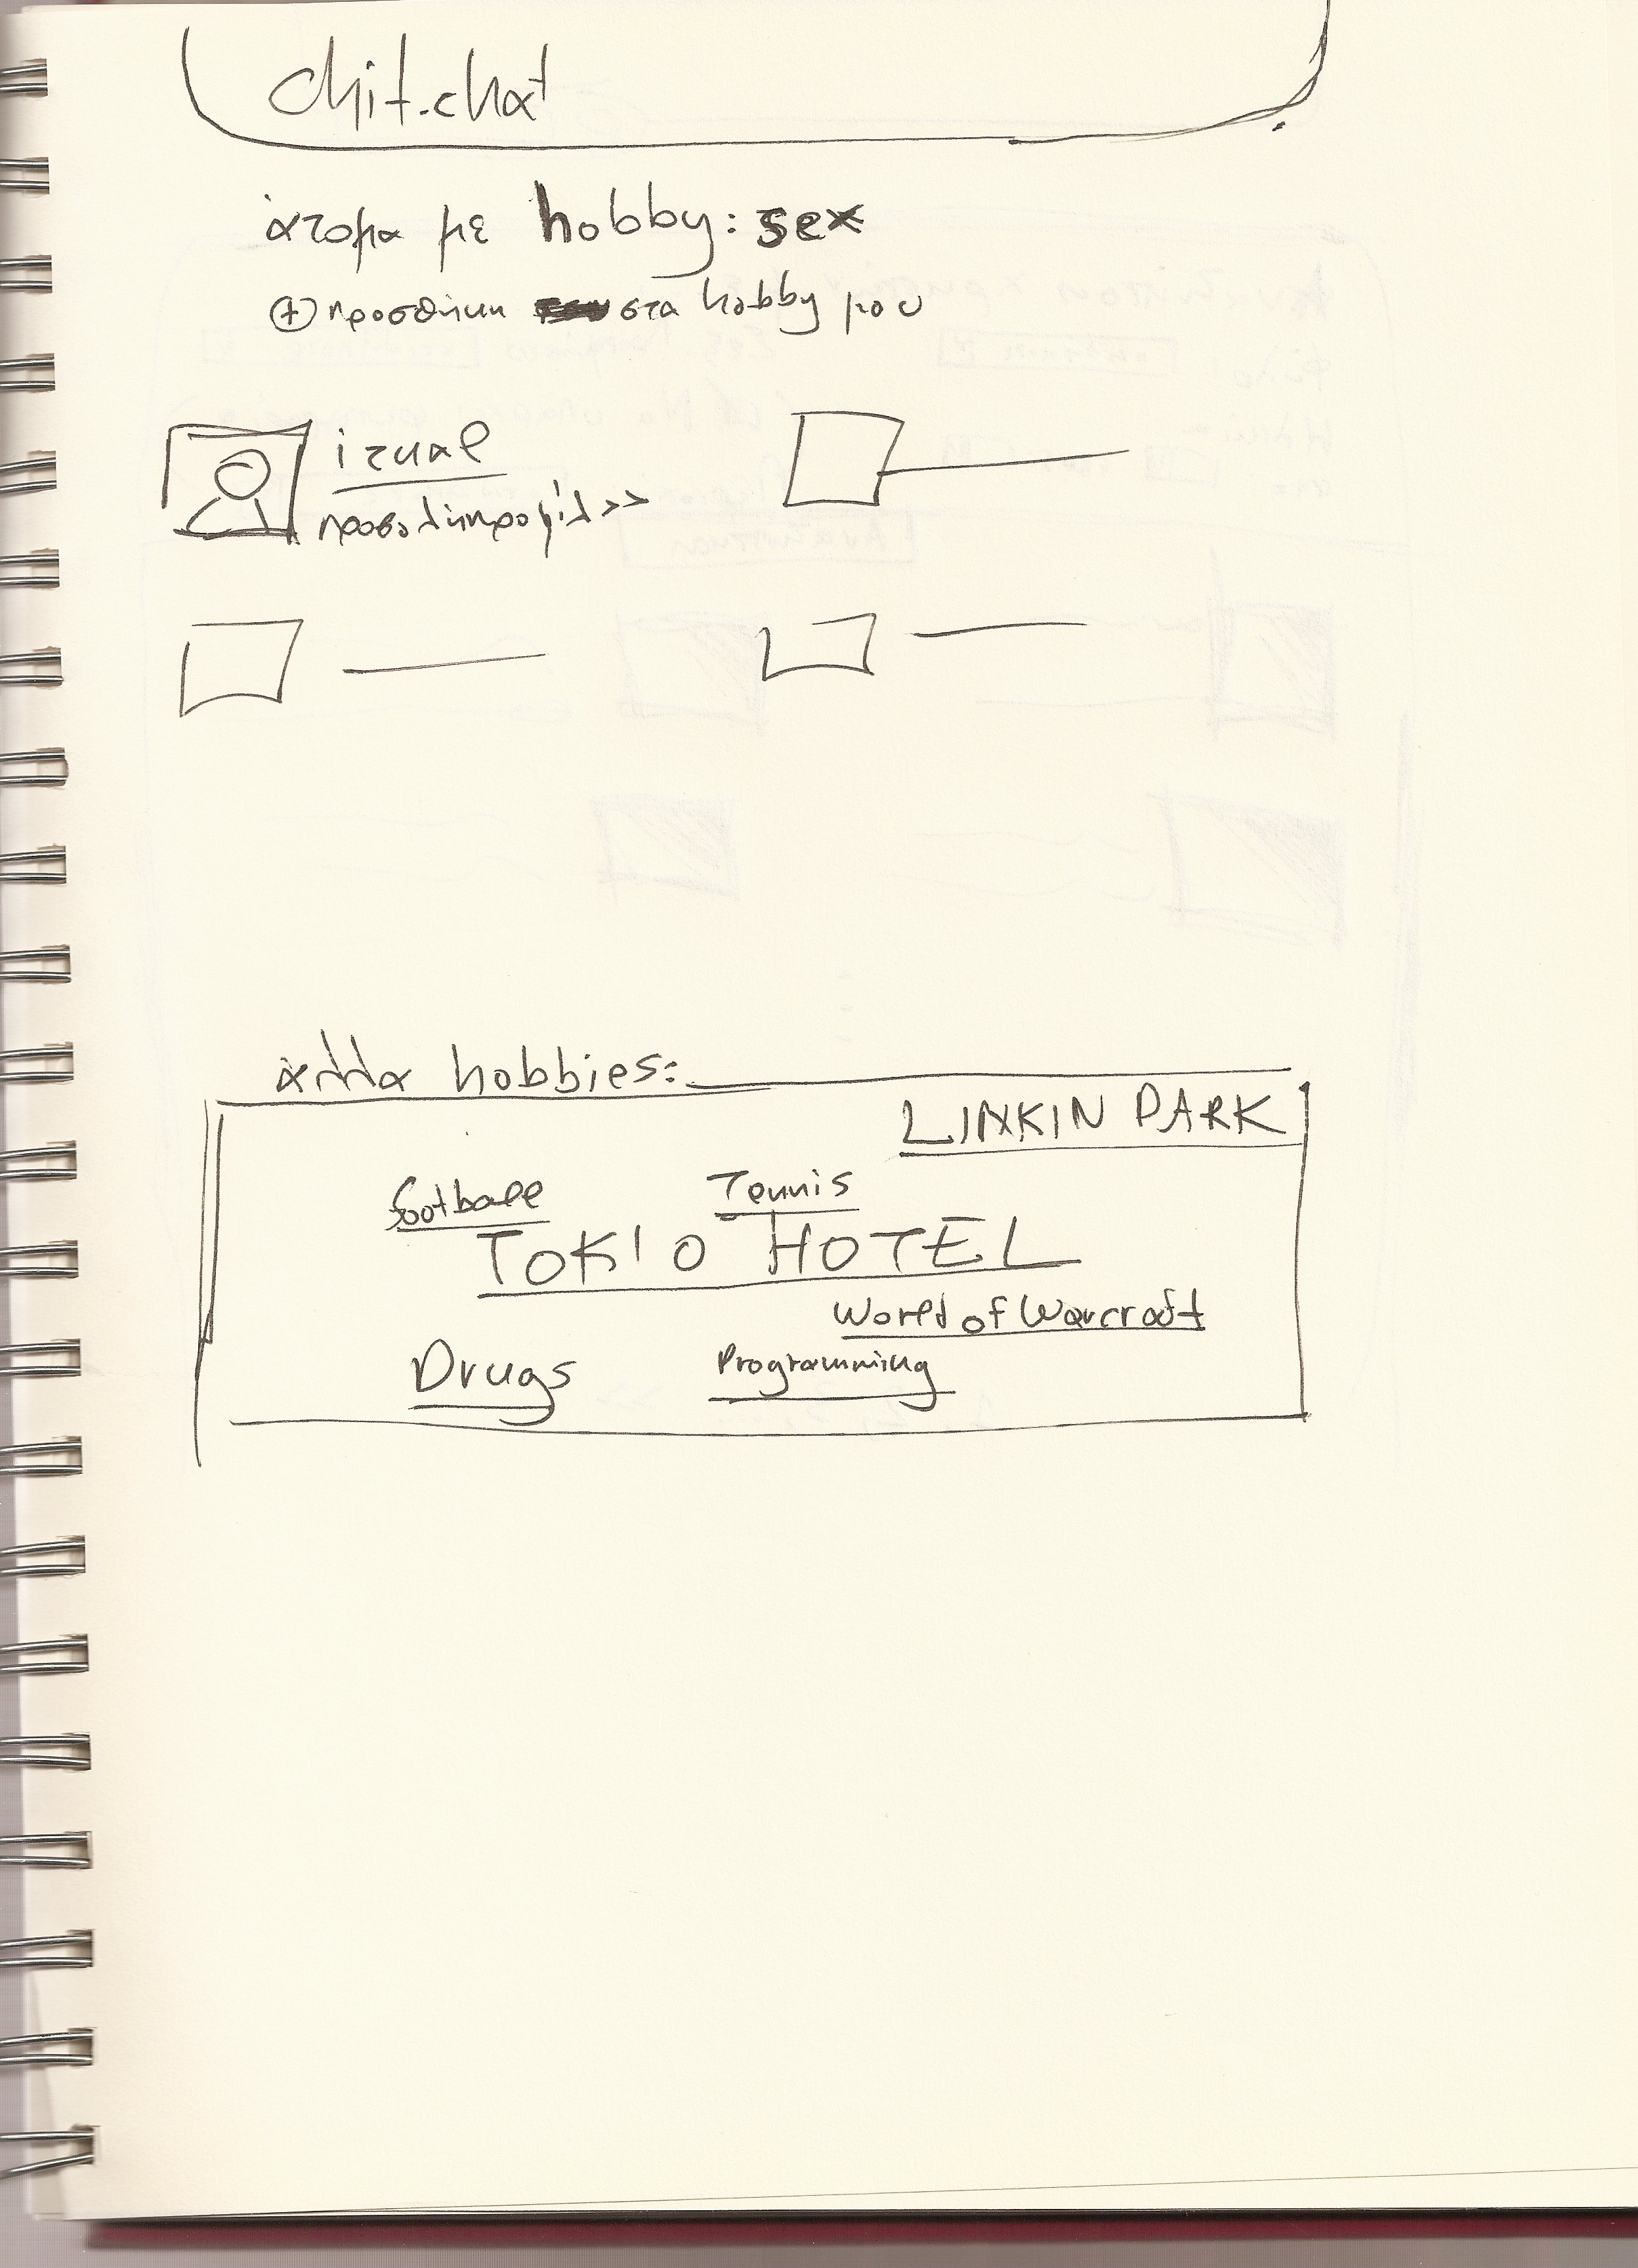 chit-chat
άτομα με hobby: sex
+ προσθήκη στα hobby μου
izual
προβολή προφίλ >>
άλλα hobbies:
LINKIN PARK
football Tennis
TOKIO HOTEL
World of Warcraft
Drugs Programming